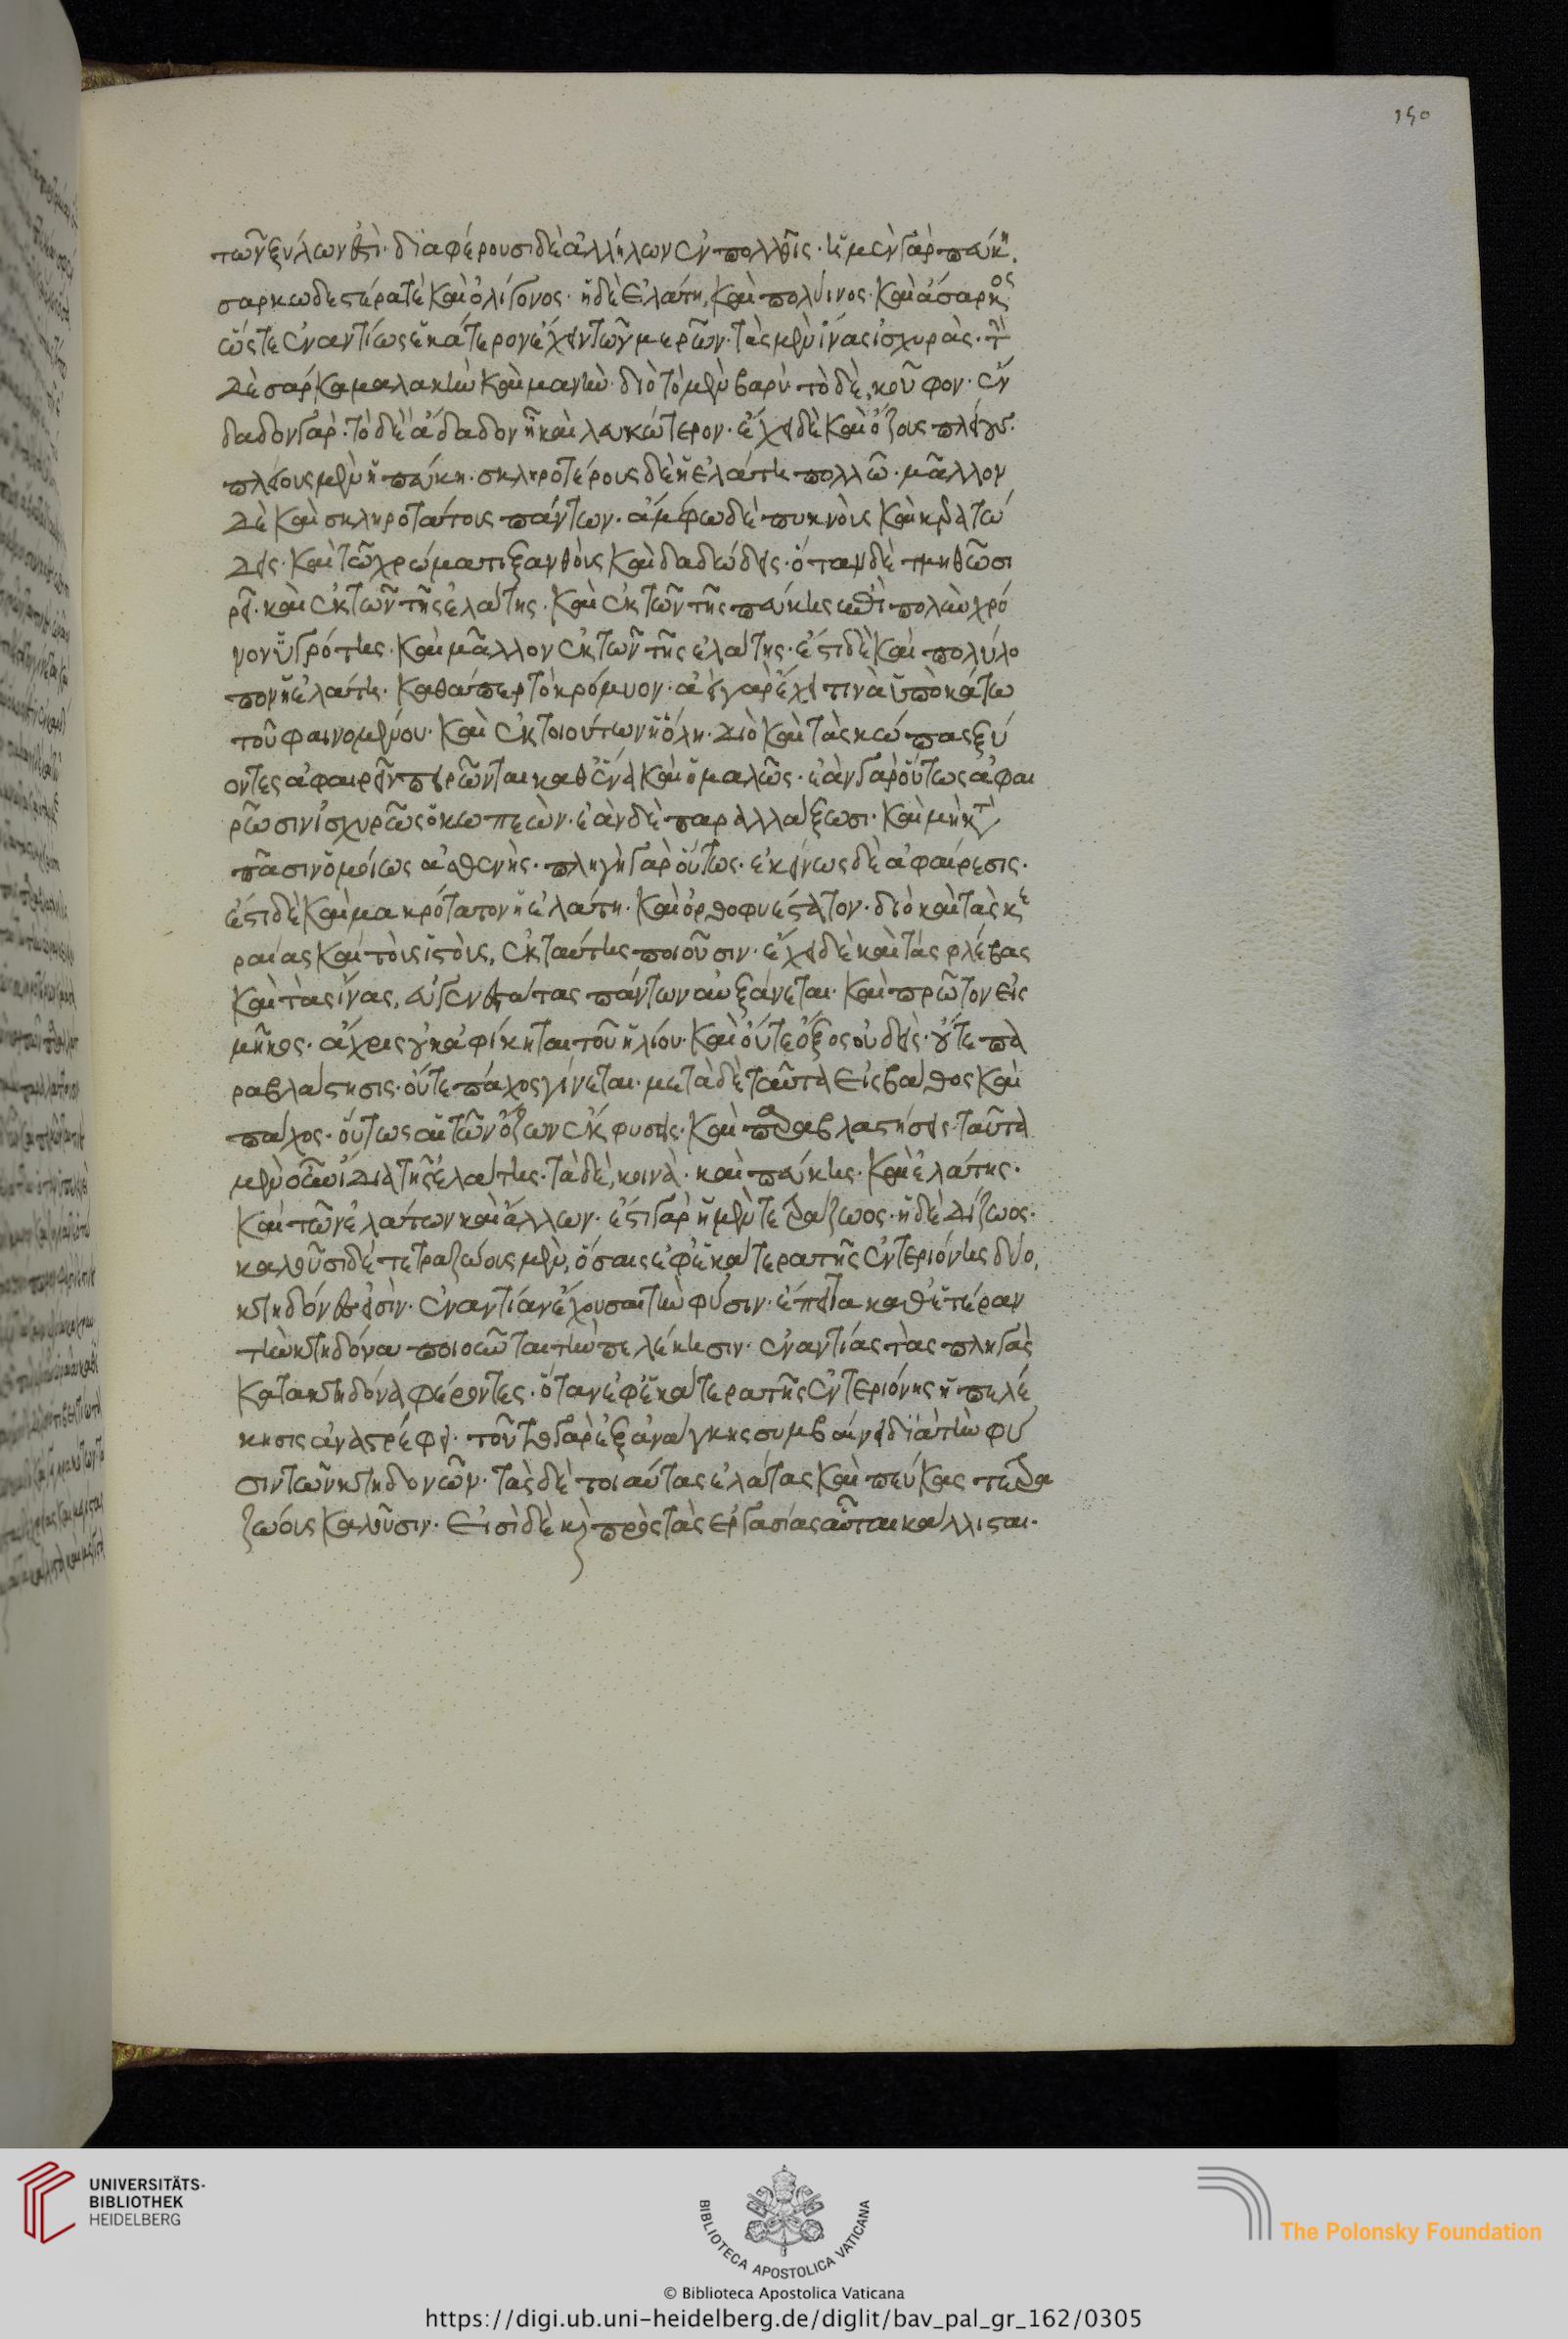 150
τῶν ξύλων ἐστί· διαφέρουσι δὲ ἀλλήλων ἐν πολλοῖς· ἡ μὲν γὰρ πεύκη
σαρκωδεστέρα τὲ καὶ ὀλιγόινος· ἡ δὲ ἐλάτη, καὶ πολύινος καὶ ἄσαρκος
ὥστε ἐναντίως ἑκάτερον ἔχειν τῶν μερῶν· τὰς μὲν ἵνας ἰσχυρὰς· τὴν
δὲ σάρκα μαλακὴν καὶ μανήν· διὸ τὸ μὲν βαρύ· τὸ δὲ, κοῦφον· ἔν
δαδον γάρ· τὸ δὲ ἄδαδον ἧ καὶ λευκώτερον· ἔχει δὲ καὶ ὄζους πλείους·
πλείους μὲν ἡ πεύκη· σκληροτέρους δὲ ἡ ἐλάτη πολλῶ· μᾶλλον
δὲ καὶ σκληροτάτους πάντων· ἄμφω δὲ πυκνοὺς καὶ κερατώ
δεις· καὶ τῶ χρώματι ξανθοὺς καὶ δαδώδεις· ὅταν δὲ τμηθῶσι
ῥεῖ· καὶ ἐκ τῶν τῆς ἐλάτης· καὶ ἐκ τῶν τῆς πεύκης ἐπὶ πολὺν χρό
νον ὑγρότης· καὶ μᾶλλον ἐκ τῶν τῆς ἐλάτης· ἔστι δὲ καὶ πολύλο
πον ἡ ἐλάτη· καθάπερ τὸ κρόμυον· ἀεὶ γὰρ ἔχει τινὰ ὑποκάτω
τοῦ φαινομένου· καὶ ἐκ τοιούτων ἡ ὅλη· διὸ καὶ τὰς κώπας ξύ
οντες ἀφαιρεῖν πειρῶνται καθένα καὶ ὁμαλῶς· ἐὰν γὰρ οὕτως ἀφαι
ρῶσιν ἰσχυρῶς ὁ κωπεών· ἐὰν δὲ παραλλάξωσι· καὶ μὴ κτ
πᾶσιν ὁμοίως ἀσθενής· πληγὴ γὰρ οὕτως· ἐκείνως δὲ ἀφαίρεσις·
ἔστι δὲ καὶ μακρότατον ἡ ἐλάτη· καὶ ὀρθοφυέστατον· διὸ καὶ τὰς κε
ραίας καὶ τοὺς ἱστοὺς, ἐκ ταύτης ποιοῦσιν· ἔχει δὲ καὶ τὰς φλέβας
καὶ τὰς ἵνας, εὐγενεστάτας πάντων αὐξάνεται· καὶ πρῶτον εἰς
μῆκος· ἄχρις οὗ κἀφίκηται τοῦ ἡλίου· καὶ οὔτε ὄξος οὐδεὶς· οὔτε πα
ραβλάστησις· οὔτε πάχος γίνεται· μετὰ δὲ ταῦτα εἰς βάθος καὶ
πάχος· οὕτως αἱ τῶν ὄζων ἐκφύσεις· καὶ παραβλαστήσεις· ταῦτα
μὲν οὖν ἴδια τῆς ἐλάτης· τὰ δὲ, κοινὰ· καὶ πεύκης· καὶ ἐλάτης·
καὶ τῶν ἐλάτων καὶ ἄλλων· ἔστι γὰρ ἡ μὲν τετράζωος· ἡ δὲ δίζωος·
καλοῦσι δὲ τετραζώους μὲν, ὅσαις ἐφ' ἑκάτερα τῆς ἐντεριόνης δύο,
κτηδόνες εἰσίν· ἐναντίαν ἔχουσαι τὴν φύσιν· ἔπειτα καθ' ἑτέραν
τὴν κτηδόνα ποιοῦνται τὴν πελέκησιν· ἐναντίας τὰς πληγὰς
κατα κτηδόνα φέροντες· ὅταν ἐφ' ἑκάτερα τῆς ἐντεριόνης ἡ πελέ
κησις ἀναστρέφει· τοῦτο γὰρ ἐξ ἀνάγκης συμβαίνει διὰ τὴν φύ
σιν τῶν κτηδονῶν· τὰς δὲ τοιαύτας ἐλάτας καὶ πεύκας τετρα
ζώους καλοῦσιν· εἰσὶ δὲ καὶ πρὸς τὰς ἐργασίας αὗται κάλλισται·
UNIVERSITÄTS-
BIBLIOTHEK
HEIDELBERG
BIBLIOTECA APOSTOLICA VATICANA
The Polonsky Foundation
© Biblioteca Apostolica Vaticana
https://digi.ub.uni-heidelberg.de/diglit/bav_pal_gr_162/0305